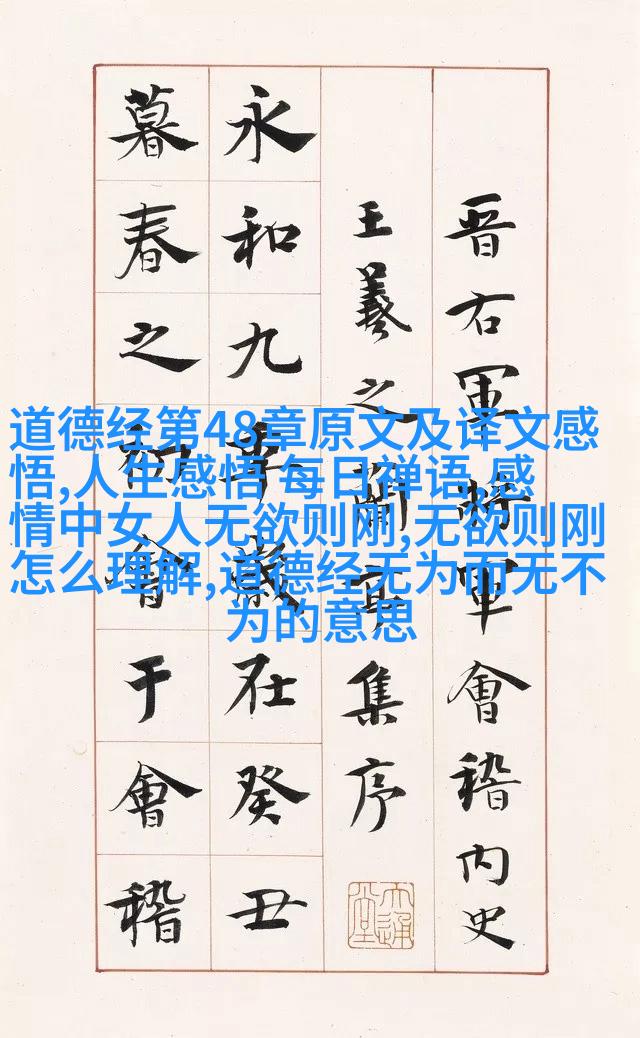 晋右軍將軍會稽内史
王羲之蘭亭集序
永和九年歲在癸丑
暮春之初會于會稽
道德经第48章原文及译文感
悟,人生感悟 每日禅语,感
情中女人无欲则刚,无欲则刚
怎么理解,道德经无为而无不
为的意思